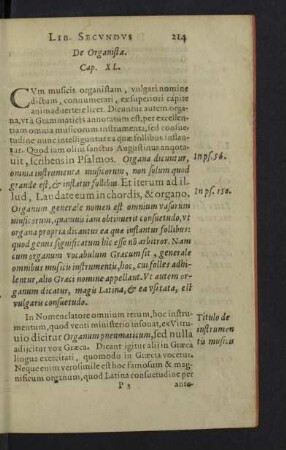 LIB. SECVNDVS 214
De Organista.
Cap. XL.
CVm musicis organistam, vulgari nomine
dictum, connumerari, ex superiori capite
animadvertere licet. Dicuntur autem orga-
na, vt à Grammaticis annotatum est, per excellen-
tiam omnia musicorum instrumenta, sed consue-
tudine nunc intelliguntur ea quæ follibus inflan-
tur. Quod iam olim sanctus Augustinus annota-
uit, scribens in Psalmos. Organa dicuntur,
In ps. 56.
omnia instrumenta musicorum, non solum quod
grande est, & inflatur follibus. Et iterum ad il-
lud, Laudate eum in chordis, & organo,
In ps. 150.
Organum generale nomen est omnium vasorum
musicorum, quamuis iam obtinuerit consuetudo, vt
organa propria dicantur ea quæ inflantur follibus:
quod genus significatum hîc esse nõ arbitror. Nam
cum organum vocabulum Græcum sit, generale
omnibus musicis instrumentis, hoc, cui folles adhi-
bentur, alio Græci nomine appellant. Vt autem or-
ganum dicatur, magis Latina, & ea vsitata, est
vulgaris consuetudo.
In Nomenclatore omnium rerum, hoc instru-
Titulo de
mentum, quod venti ministerio insonat, ex Vitru-
instrumen
uio dicitur Organum pneumaticum, sed nulla
tis musicis
adijcitur vox Græca. Dicant igitur alij in Græcis
linguæ exercitati, quomodo in Græcia vocetur.
Neque enim verosimile est hoc famosum & mag-
nificum organum, quod Latina consuetudine per
P 3 anto-